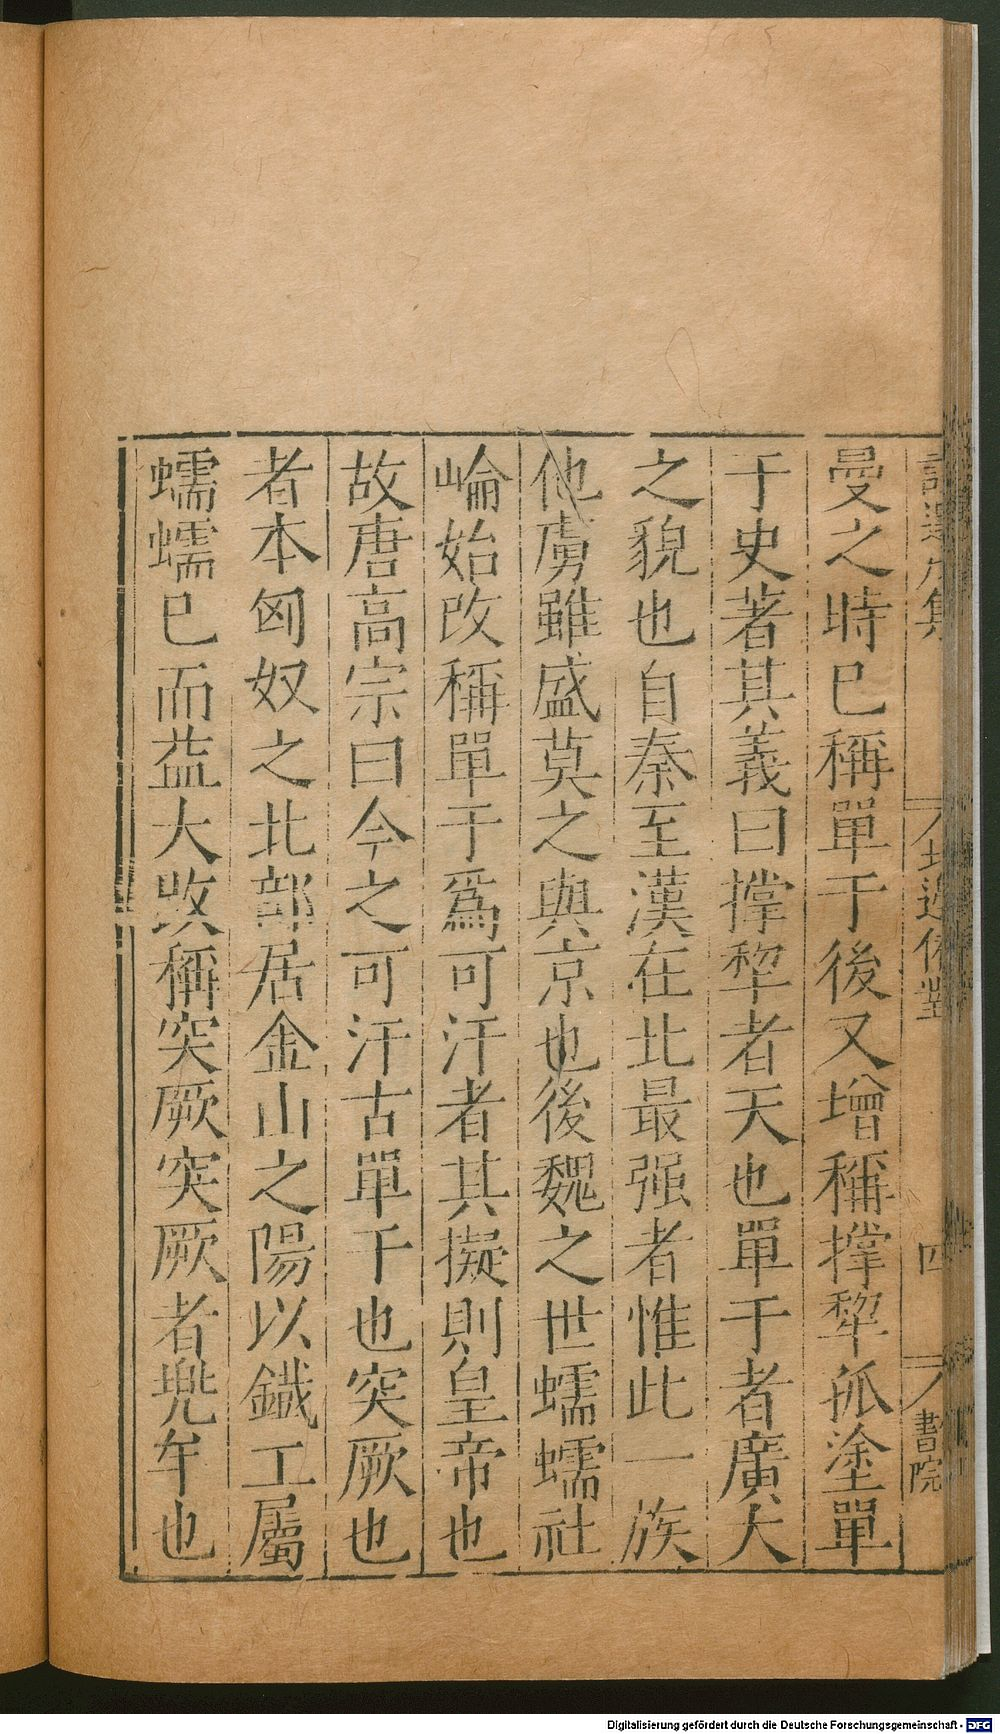 曼之時巳稱單于後又增稱撑犂孤塗單
于史著其義曰撑犂者天也單于者廣大
之貌也自秦至漢在北最强者惟此一族
他虜雖盛莫之與京也後魏之世蠕蠕社
崘始改稱單于爲可汗者其擬則皇帝也
故唐高宗曰今之可汗古單于也突厥也
者本匈奴之北部居金山之陽以鐡工屬
蠕蠕巳而益大改稱突厥突厥者兠牟也
四
書院
Digitalisierung gefördert durch die Deutsche Forschungsgemeinschaft - DFG